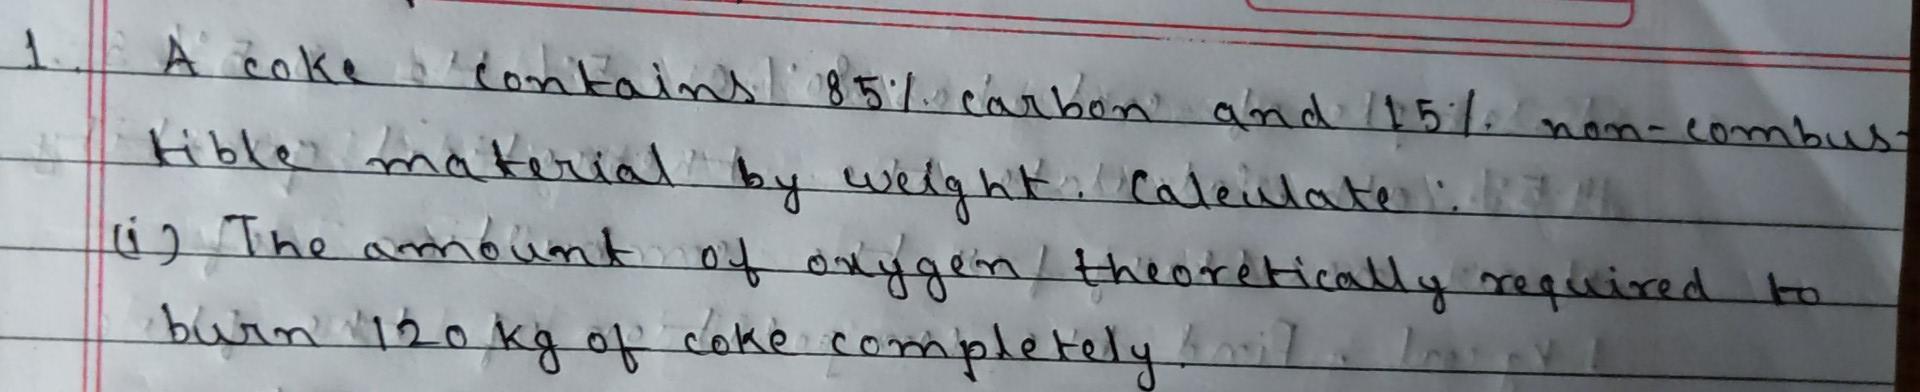 1. A coke contains 85% carbon and 15% non-combus-
tible material by weight. Calculate:
(i) The amount of oxygen theoretically required to
burn 120 kg of coke completely.